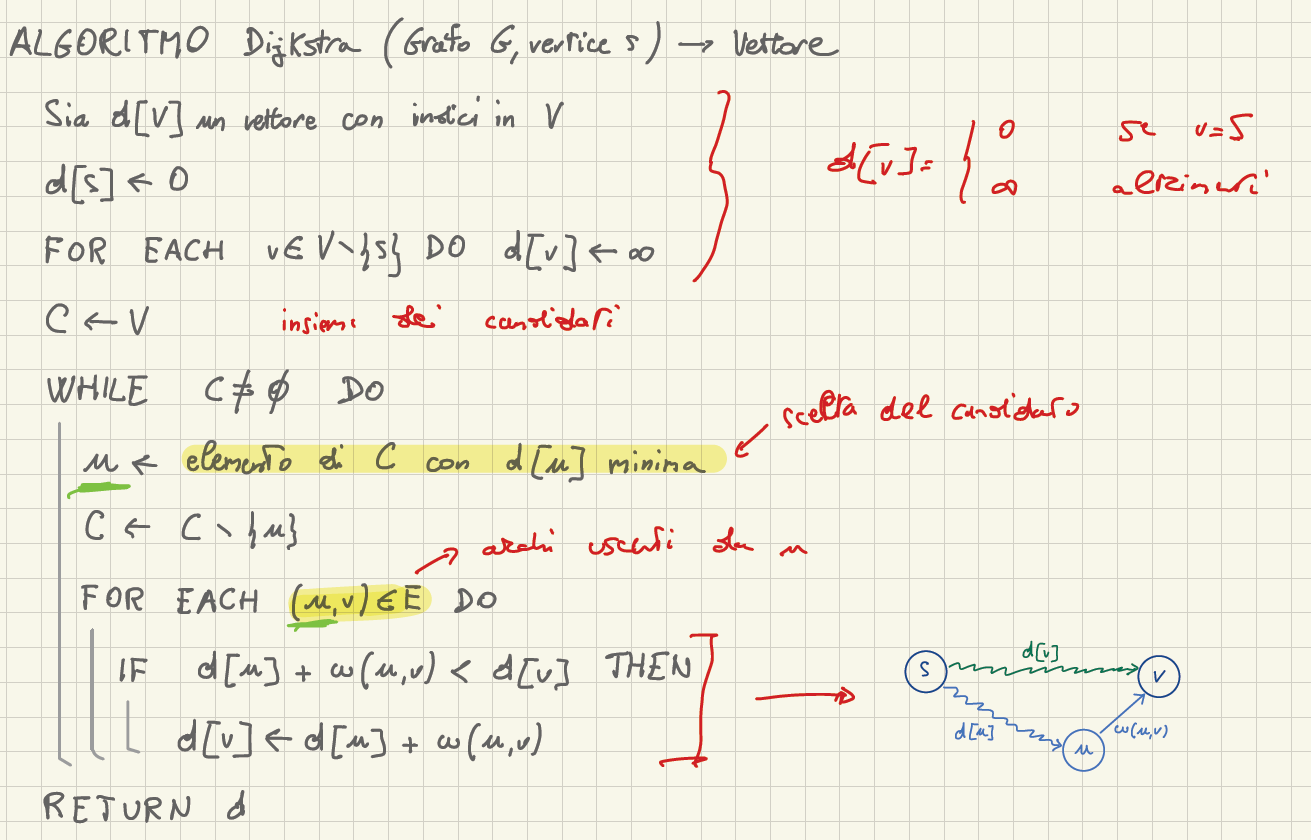 ALGORITMO Dijkstra (Grafo G, vertice s) → Vettore
Sia d[V] un vettore con indici in V
d[s] ← 0
FOR EACH v ∈ V \ {s} DO d[v] ← ∞
d[v] = { 0 se v = S
∞ altrimenti
C ← V insieme dei candidati
WHILE C ≠ ∅ DO
scelta del candidato
u ← elemento di C con d[u] minima
C ← C \ {u}
archi uscenti da u
FOR EACH (u,v) ∈ E DO
IF d[u] + ω(u,v) < d[v] THEN
d[v] ← d[u] + ω(u,v)
S d[v] v
d[u] u ω(u,v)
RETURN d